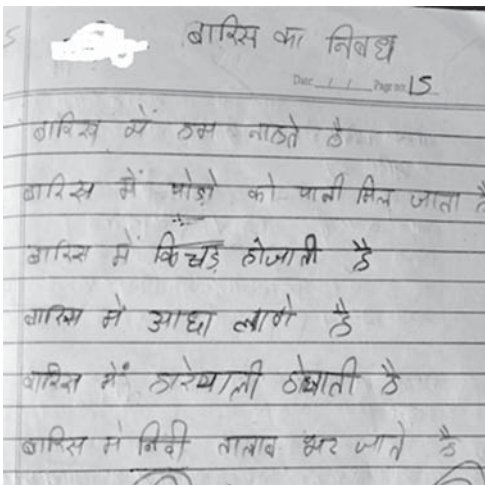 बारिस का निबध
Date / / Page no: 15
बारिस में हम नाहते है
बारिस में पोड़ो को पानी मिल जाता है
बारिस में किचड़ होजाती है
बारिस में आछा लागे है
बारिस में हारेयाली होजाती है
बारिस में निदी तालाव भर जाते है